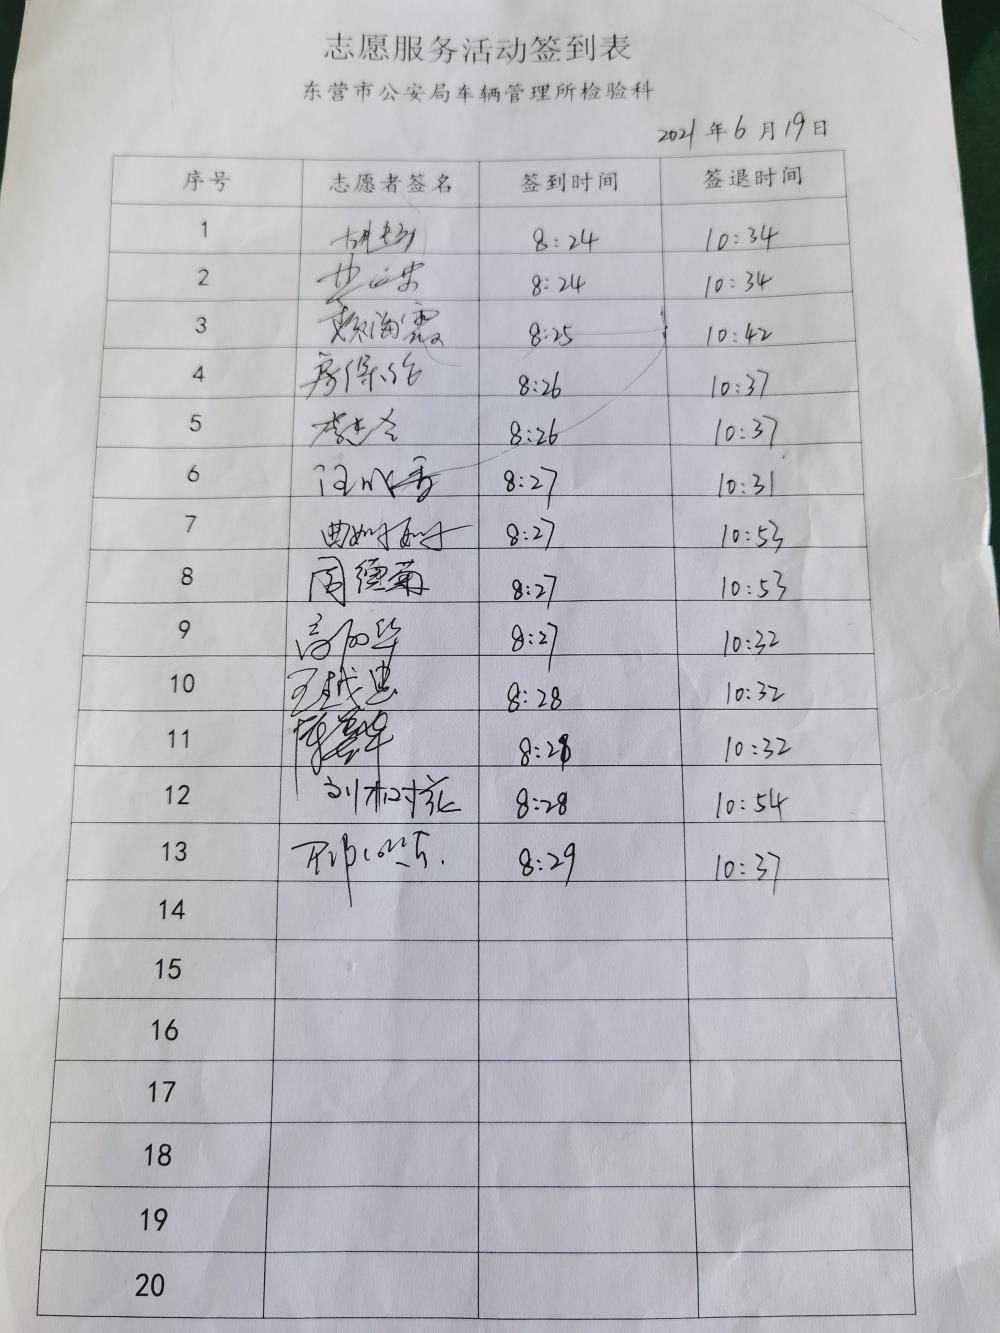 志愿服务活动签到表
东营市公安局车辆管理所检验科
2021年6月19日
序号 志愿者签名 签到时间 签退时间
1 8:24 10:34
2 8:24 10:34
3 赖海霞 8:25 10:42
4 8:26 10:37
5 8:26 10:37
6 8:27 10:31
7 曲娜娜 8:27 10:53
8 周德菊 8:27 10:53
9 8:27 10:32
10 王越忠 8:28 10:32
11 8:28 10:32
12 8:28 10:54
13 8:29 10:37
14
15
16
17
18
19
20